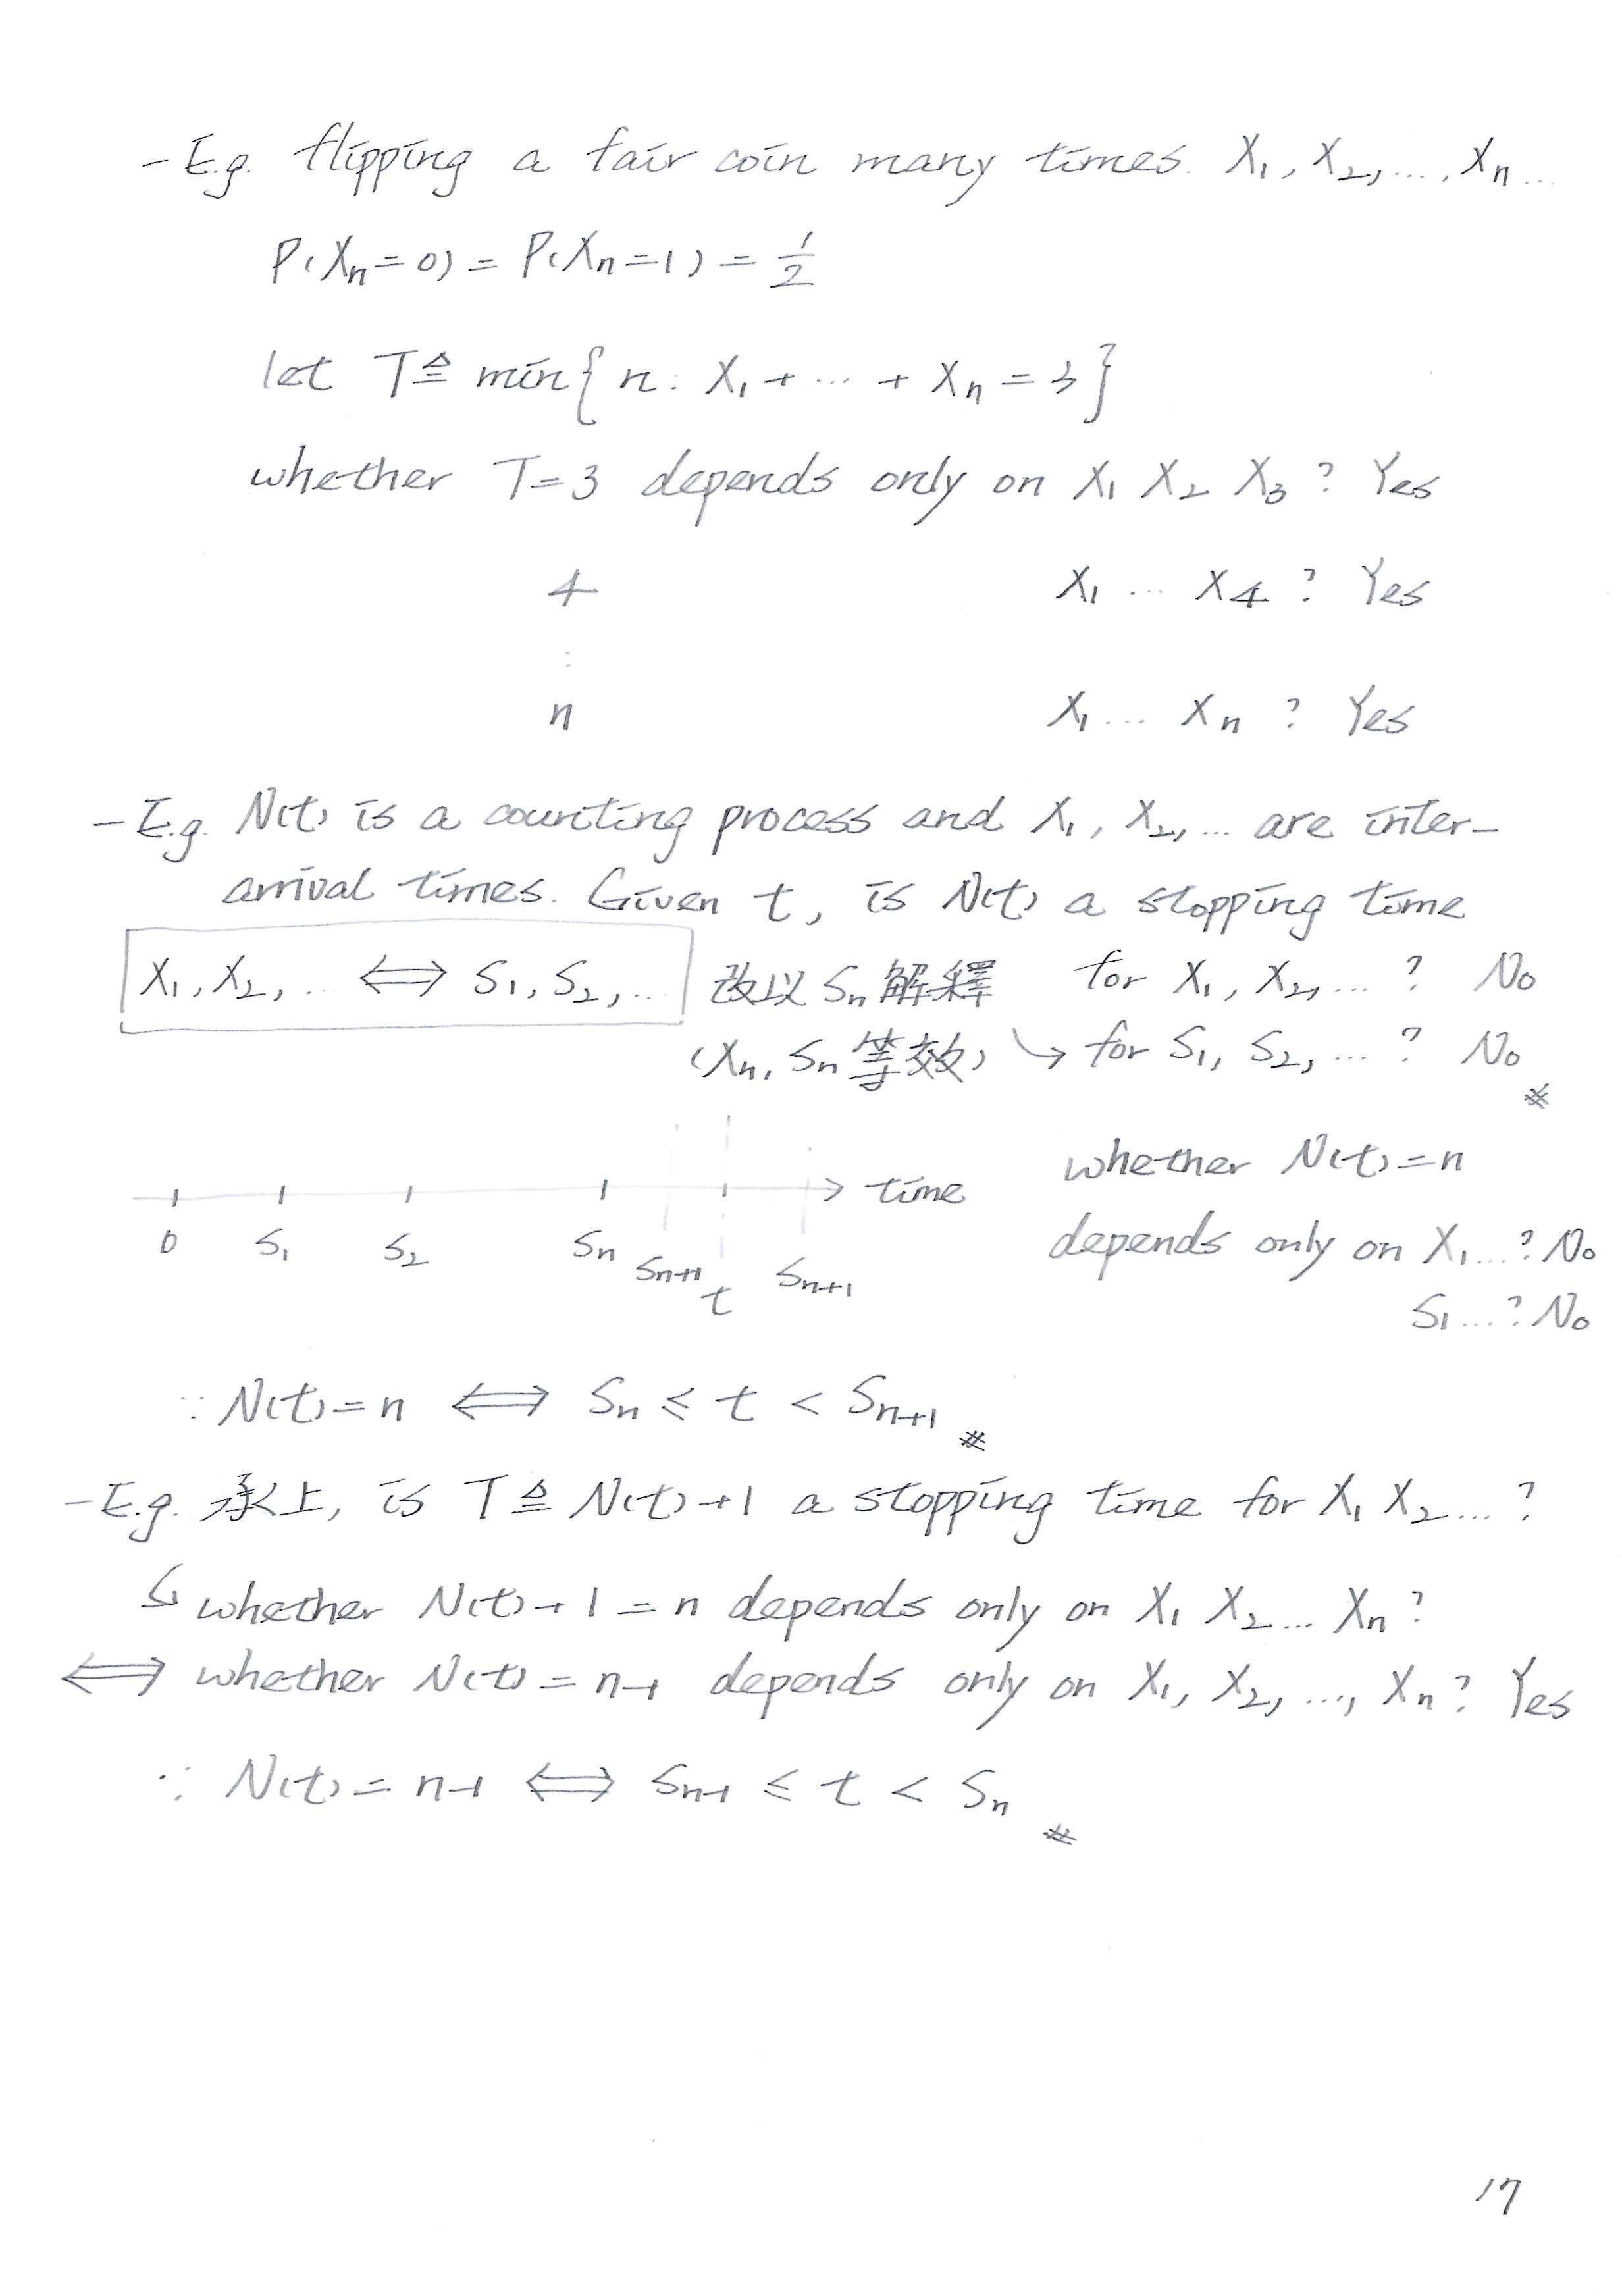 - E.g. flipping a fair coin many times. X₁, X₂, ..., Xₙ ...
P(Xₙ=0) = P(Xₙ=1) = 1/2
let T ≜ min{ n: X₁ + ... + Xₙ = 3}
whether T=3 depends only on X₁ X₂ X₃ ? Yes
4 X₁ ... X₄ ? Yes
:
n X₁ ... Xₙ ? Yes
- E.g. N(t) is a counting process and X₁, X₂, ... are inter-
arrival times. Given t, is N(t) a stopping time
X₁, X₂, ... ⟺ S₁, S₂, ... 改以 Sₙ 解釋 for X₁, X₂, ... ? No
(Xₙ, Sₙ 等效) ↘ for S₁, S₂, ... ? No #
whether N(t)=n
→ time
depends only on X₁ ...? No
0 S₁ S₂ Sₙ Sₙ₊₁ t Sₙ₊₁
S₁ ...? No
∵ N(t)=n ⟺ Sₙ ≤ t < Sₙ₊₁ #
- E.g. 承上, is T ≜ N(t)+1 a stopping time for X₁ X₂ ... ?
↳ whether N(t)+1 = n depends only on X₁ X₂ ... Xₙ ?
⟺ whether N(t) = n-1 depends only on X₁, X₂, ..., Xₙ ? Yes
∵ N(t) = n-1 ⟺ Sₙ₋₁ ≤ t < Sₙ #
17